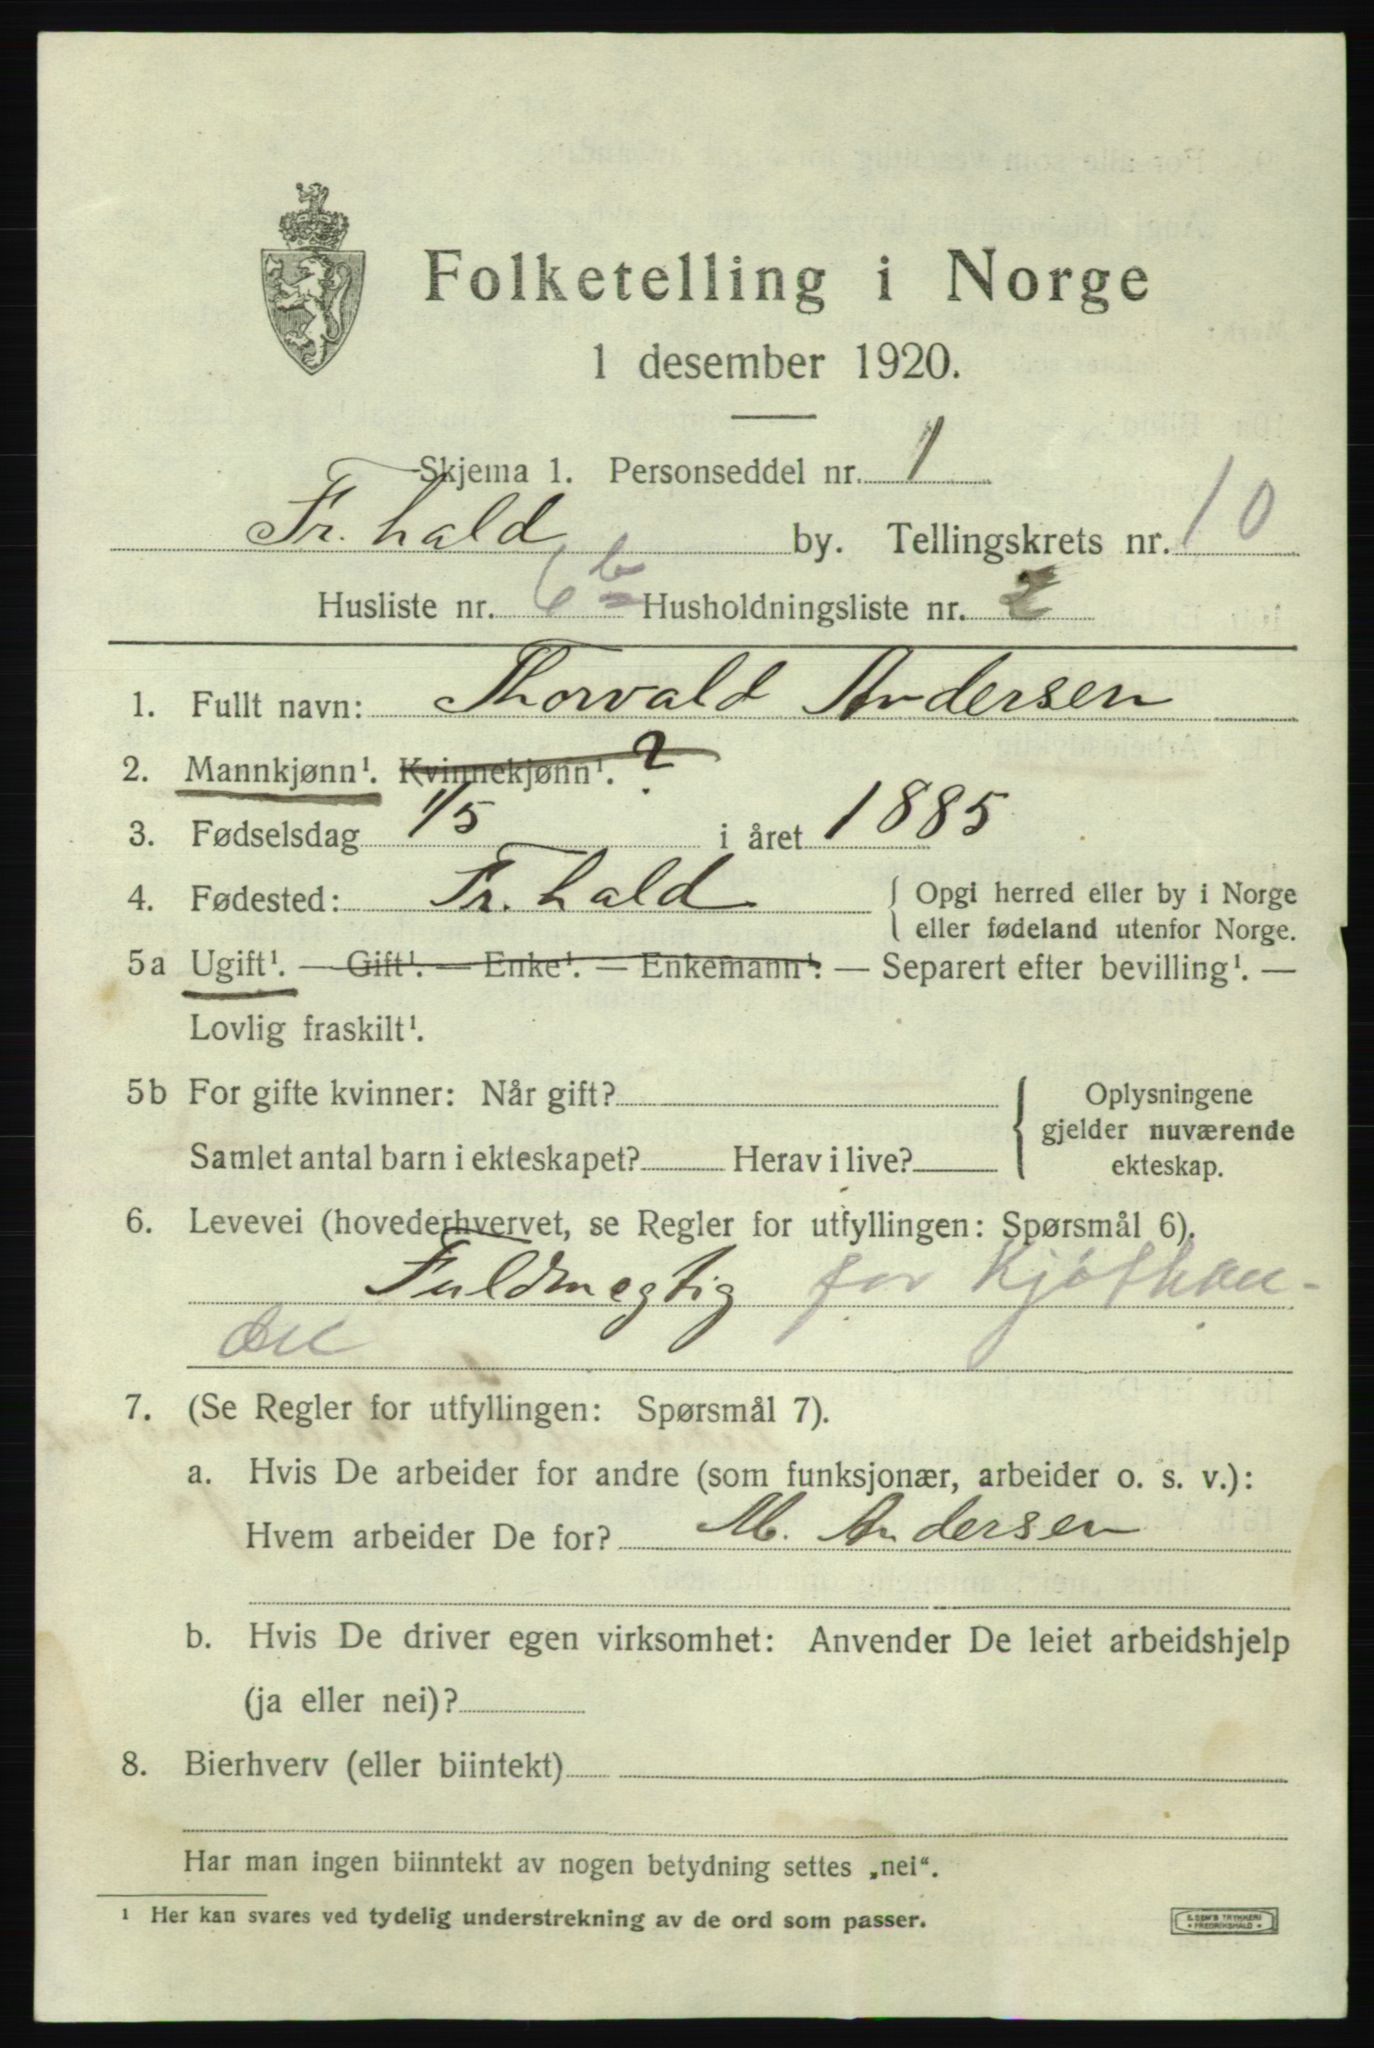 Folketelling i Norge
1 desember 1920.
Skjema 1. Personseddel nr. 1
Fr. hald by. Tellingskrets nr. 10
Husliste nr. 6 b Husholdningsliste nr. 2
1. Fullt navn: Thorvald Andersen
2. Mannkjønn¹. Kvinnekjønn¹. ?
3. Fødselsdag 1/5 i året 1885
4. Fødested: Fr. hald { Opgi herred eller by i Norge
eller fødeland utenfor Norge.
5a Ugift¹. — Gift¹. — Enke¹. — Enkemann¹. — Separert efter bevilling¹. —
Lovlig fraskilt¹.
5b For gifte kvinner: Når gift?
Samlet antal barn i ekteskapet? Herav i live?
{ Oplysningene
gjelder nuværende
ekteskap.
6. Levevei (hovederhvervet, se Regler for utfyllingen: Spørsmål 6).
Fuldmegtig for Kjøthan-
del
7. (Se Regler for utfyllingen: Spørsmål 7).
a. Hvis De arbeider for andre (som funksjonær, arbeider o. s. v.):
Hvem arbeider De for? M. Andersen
b. Hvis De driver egen virksomhet: Anvender De leiet arbeidshjelp
(ja eller nei)?
8. Bierhverv (eller biintekt)
Har man ingen biinntekt av nogen betydning settes „nei“.
¹ Her kan svares ved tydelig understrekning av de ord som passer.
E. SEM'S TRYKKERI
• FREDRIKSHALD •